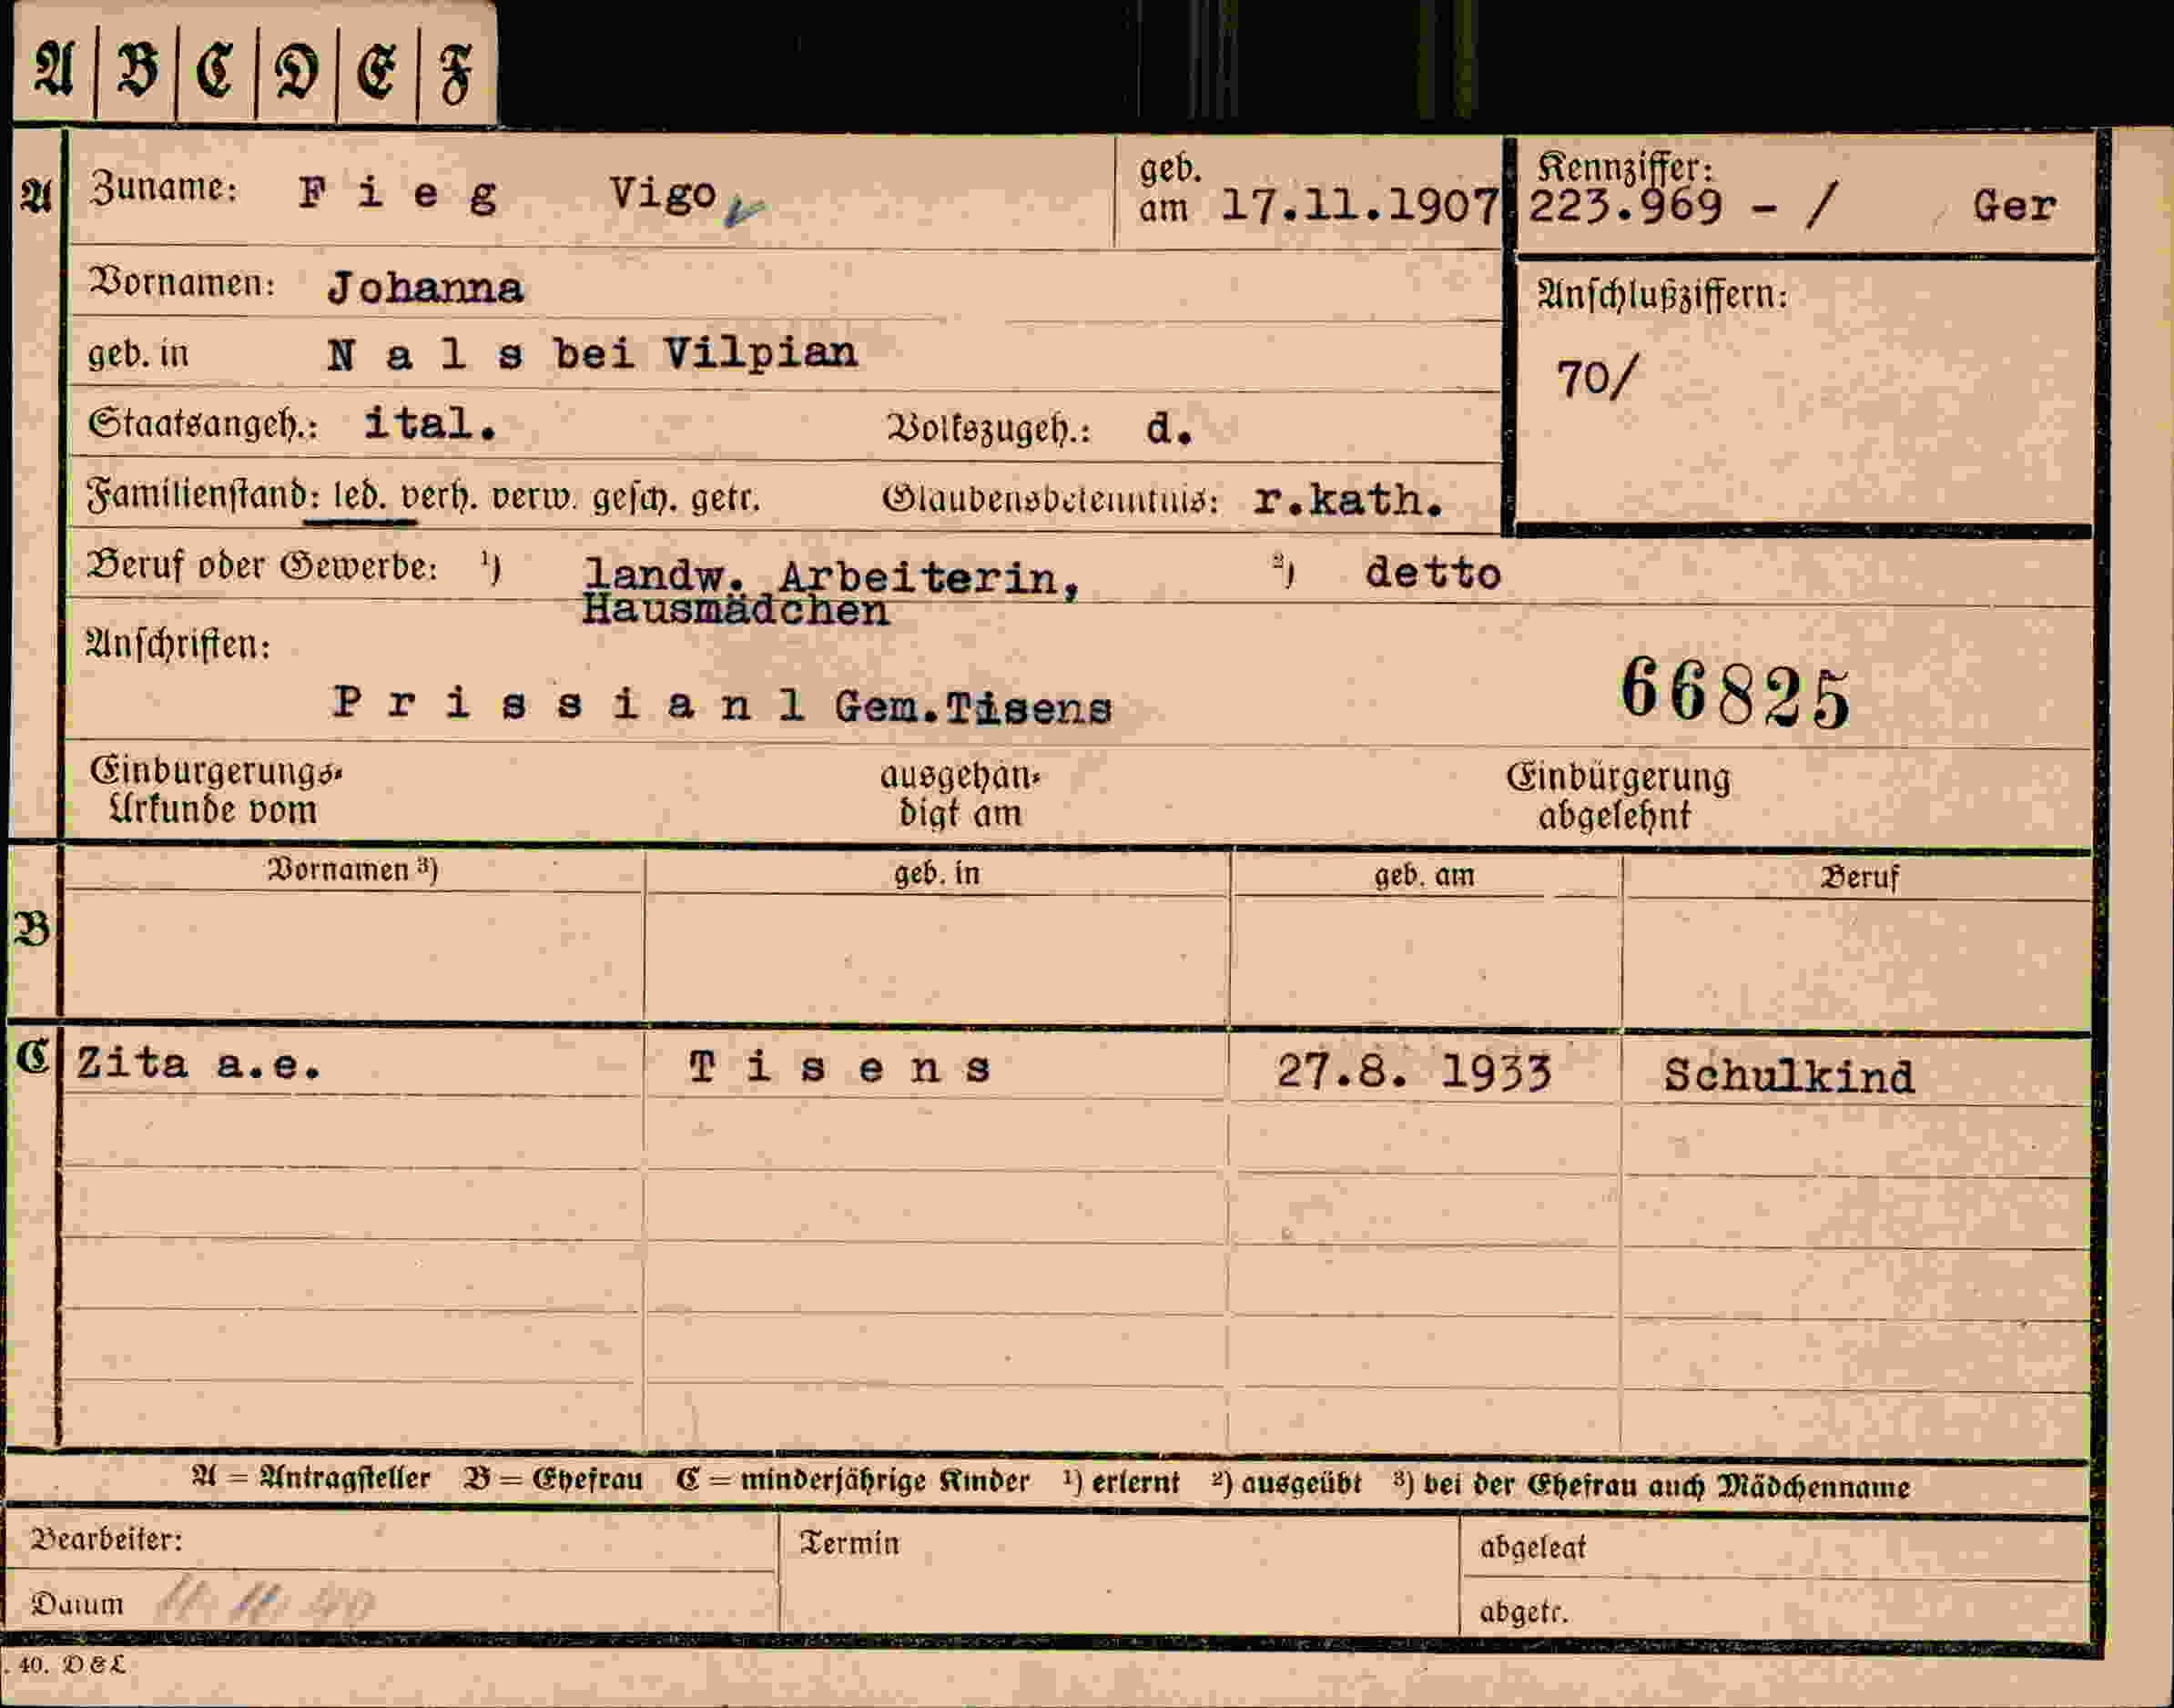 A | B | C | D | E | F
A Zuname: F i e g Vigo geb. am 17.11.1907 Kennziffer: 223.969 - / Ger
Vornamen: Johanna Anschlußziffern:
geb. in N a l s bei Vilpian 70/
Staatsangeh.: ital. Volkszugeh.: d.
Familienstand: led. verh. verw. gesch. getr. Glaubensbekenntnis: r.kath.
Beruf oder Gewerbe: 1) landw. Arbeiterin, 2) detto
Hausmädchen
Anschriften:
P r i s s i a n 1 Gem.Tisens 66825
Einbürgerungs- ausgehän- Einbürgerung
Urkunde vom digt am abgelehnt
Vornamen 3) geb. in geb. am Beruf
B
C Zita a.e. T i s e n s 27.8. 1933 Schulkind
A = Antragsteller B = Ehefrau C = minderjährige Kinder 1) erlernt 2) ausgeübt 3) bei der Ehefrau auch Mädchenname
Bearbeiter: Termin abgelegt
Datum 11. 11. 40 abgetr.
. 40. D & L